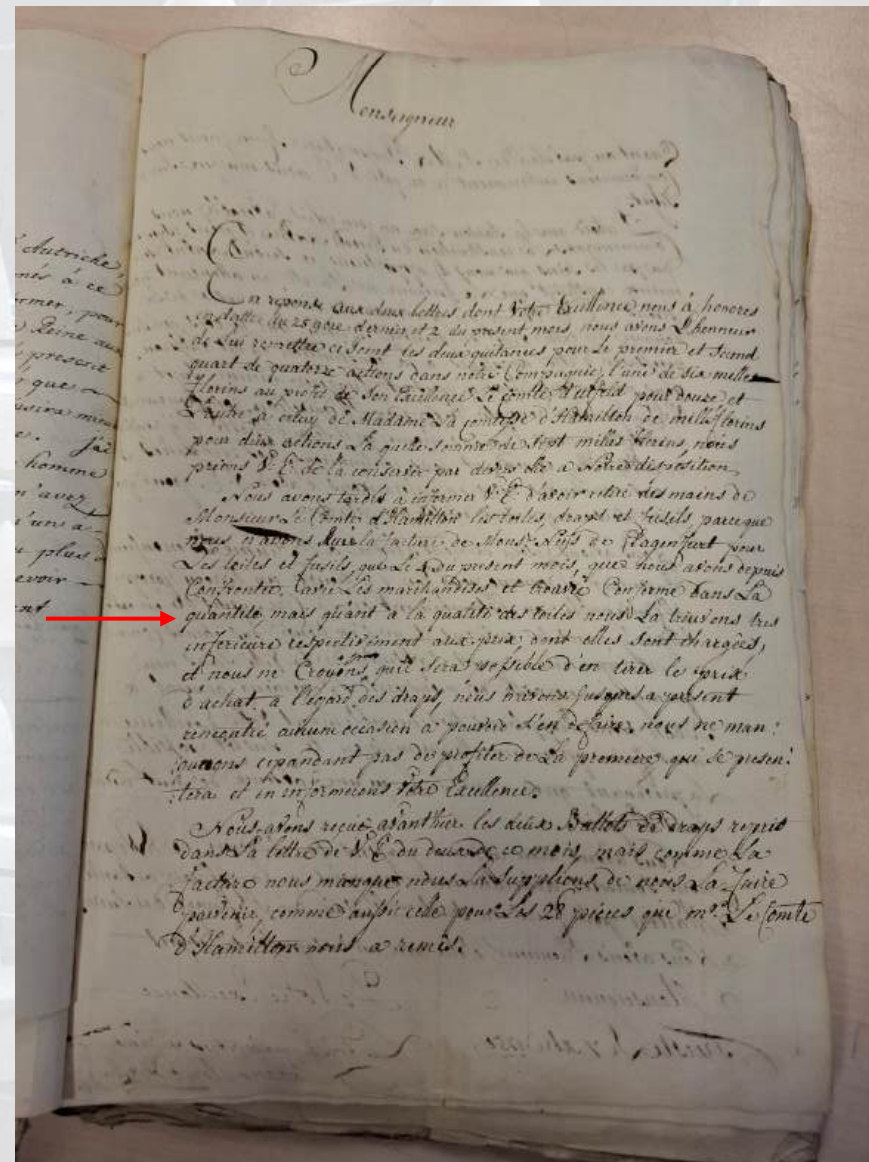 Autriche,
nés à ce
ormer, pour
Reine aux
present
que
homme
n'avez
plus d
evoir
ent
Monseigneur
En reponse aux deux lettres dont Votre Excellence nous à honorés
en datte du 28 dernier, et 2 du present mois, nous avons L'honneur
de Lui remettre ci joint les deux quitances pour Le premier et second
quart de quatorze actions dans notre Compagnie, l'une de six mille
florins au profit de Son Excellence Le Comte d'Ulfeld pour douze et
L'autre à celuy de Madame La Comtesse d'Hamilton de mille florins
pour deux actions La quelle somme de Sept milles florins, nous
prions V. E. de la conserver par devers elle a Notre disposition.
Nous avons tardés à informer V. E. d'avoir retiré des mains de
Monsieur Le Comte d'Hamilton les toiles, draps et fusils, parceque
nous n'avons la facture de Mons. de Clagenfurt pour
Les toiles et fusils, que Le 4 du present mois, que nous avons depuis
Confrontée, avec Les marchandises et trouvée Conforme dans La
quantité, mais quant à la qualité des toiles nous La trouvons tres
inferieure respectivement aux prix, dont elles sont chargées,
et nous ne Croyons, qu'il sera possible d'en tirer le prix
d'achat, a l'egard des draps, nous n'avons jusques a present
rencontré aucune occasion a pouvoir s'en defaire, nous ne man:
querons cependant pas de profiter de La premiere, qui se presen:
tera et en informerons Vôtre Excellence.
Nous avons reçue avanthier les deux Ballots de draps repris
dans La lettre de V. E. du deux de ce mois, mais comme La
facture nous manque, nous La Supplions de nous La faire
parvenir, comme aussi celle pour Les 28 pièces que mr. Le Comte
d'Hamilton nous a remis.